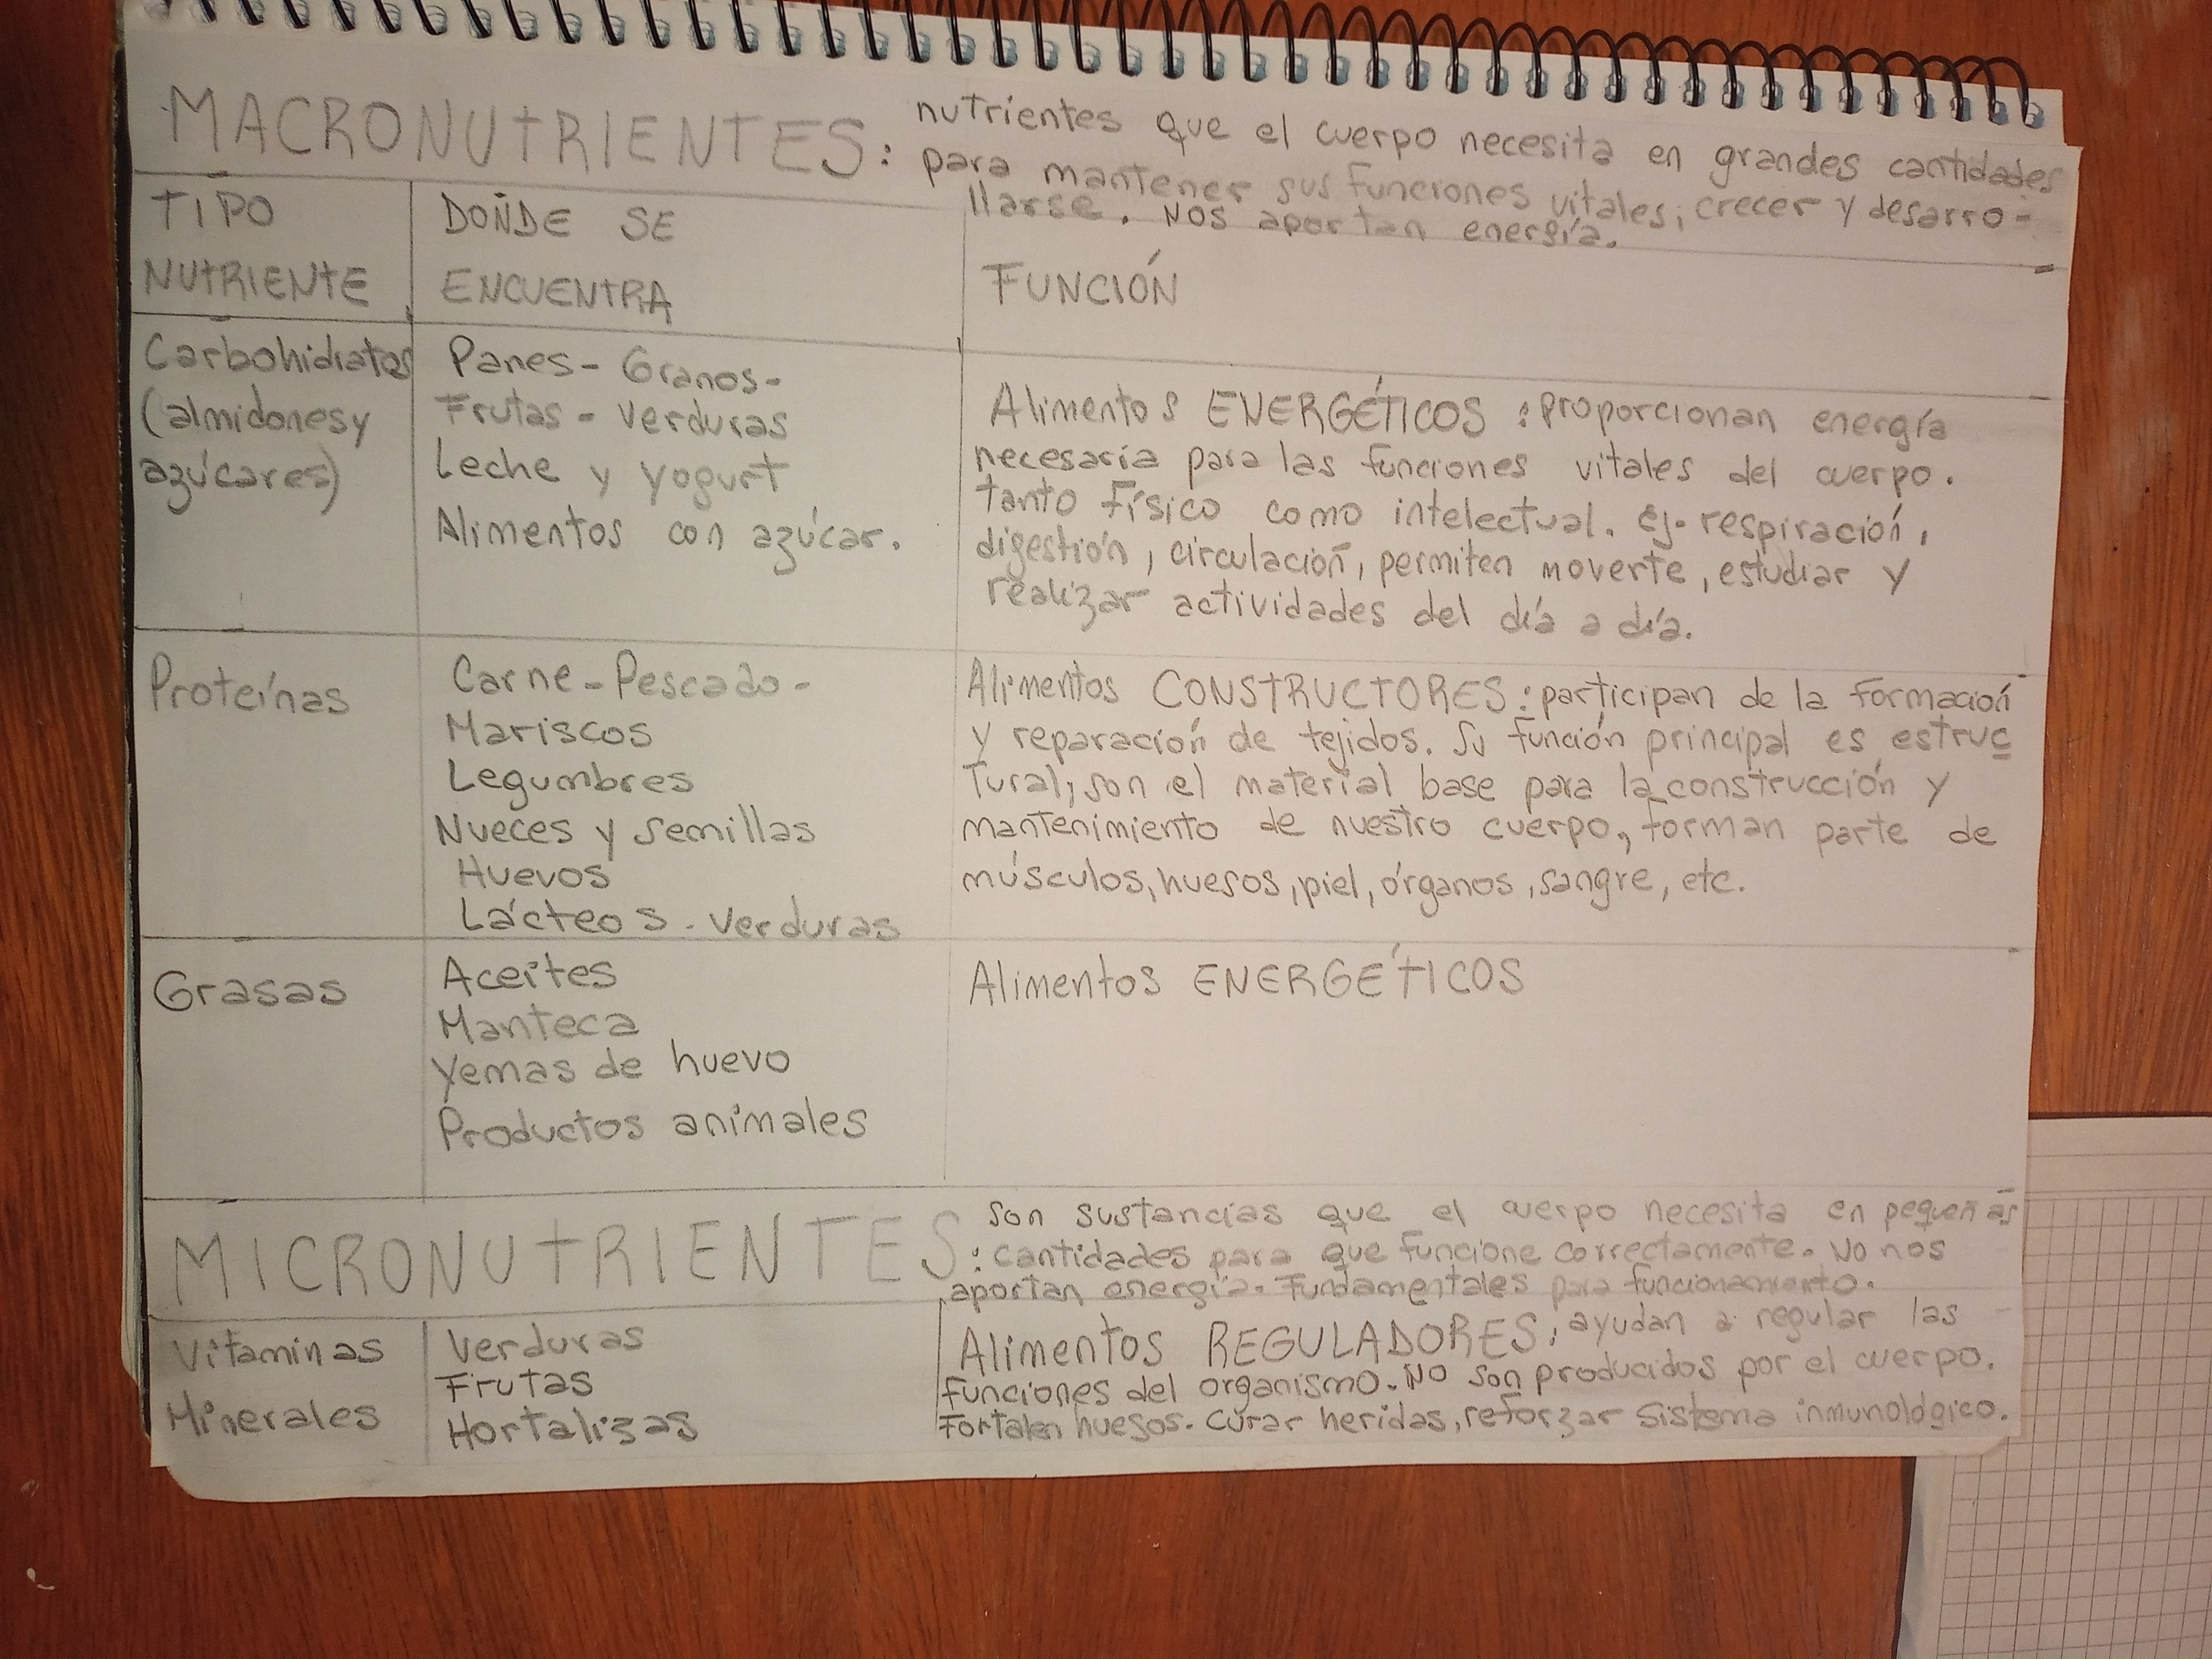 MACRONUTRIENTES: nutrientes que el cuerpo necesita en grandes cantidades
para mantener sus funciones vitales, crecer y desarro-
llarse. Nos aportan energía.
TIPO
NUTRIENTE
DONDE SE
ENCUENTRA
FUNCIÓN
Carbohidratos
(almidones y
azúcares)
Panes - Granos -
Frutas - Verduras
Leche y yogurt
Alimentos con azúcar.
Alimentos ENERGÉTICOS: proporcionan energía
necesaria para las funciones vitales del cuerpo.
tanto físico como intelectual. Ej- respiración,
digestión, circulación, permiten moverte, estudiar y
realizar actividades del día a día.
Proteínas
Carne - Pescado -
Mariscos
Legumbres
Nueces y semillas
Huevos
Lácteos - Verduras
Alimentos CONSTRUCTORES: participan de la formación
y reparación de tejidos. Su función principal es estruc
tural, son el material base para la construcción y
mantenimiento de nuestro cuerpo, forman parte de
músculos, huesos, piel, órganos, sangre, etc.
Grasas
Aceites
Manteca
Yemas de huevo
Productos animales
Alimentos ENERGÉTICOS
MICRONUTRIENTES: Son sustancias que el cuerpo necesita en pequeñas
cantidades para que funcione correctamente. No nos
aportan energía. Fundamentales para funcionamiento.
Vitaminas
Minerales
Verduras
Frutas
Hortalizas
Alimentos REGULADORES, ayudan a regular las
funciones del organismo. No son producidos por el cuerpo.
Fortalen huesos. Curar heridas, reforzar sistema inmunológico.